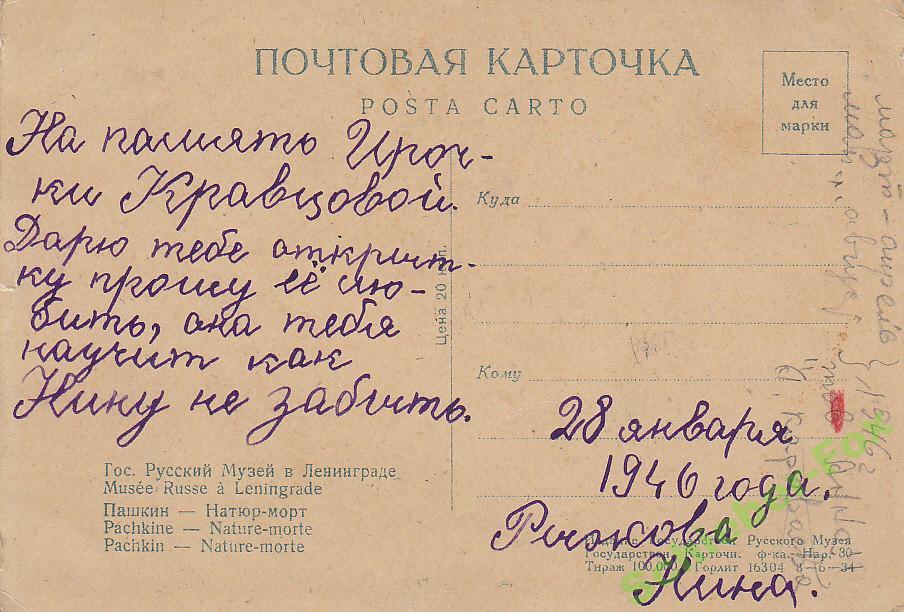 ПОЧТОВАЯ КАРТОЧКА
POSTA CARTO
Место
для
марки
На память Ироч-
ки Кравцовой.
Дарю тебе открыт-
ку прошу её лю-
бить, она тебя
научит как
Нину не забыть.
Цена 20 коп.
Куда
Кому
28 января
1946 года.
Рыжкова
Нина.
Гос. Русский Музей в Ленинграде
Musée Russe à Leningrade
Пашкин — Натюр-морт
Pachkine — Nature-morte
Pachkin — Nature-morte
Издание Государствен. Русского Музея
Государствен. Карточн. ф-ка. Нар. 30
Тираж 100.000 Горлит 16304 3-6-34
март-апрель
1946г